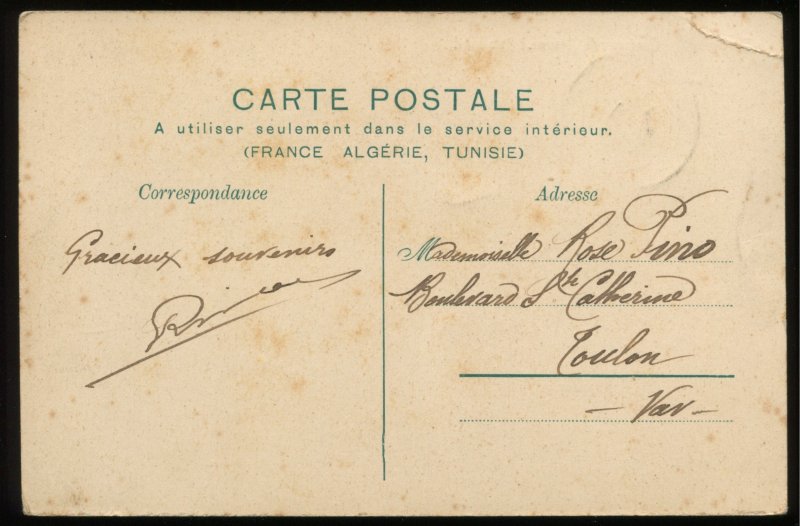 CARTE POSTALE
A utiliser seulement dans le service intérieur.
(FRANCE ALGÉRIE, TUNISIE)
Correspondance
Gracieux souvenirs
Adresse
Mademoiselle Rose Pino
Boulevard Ste Catherine
Toulon
— Var —